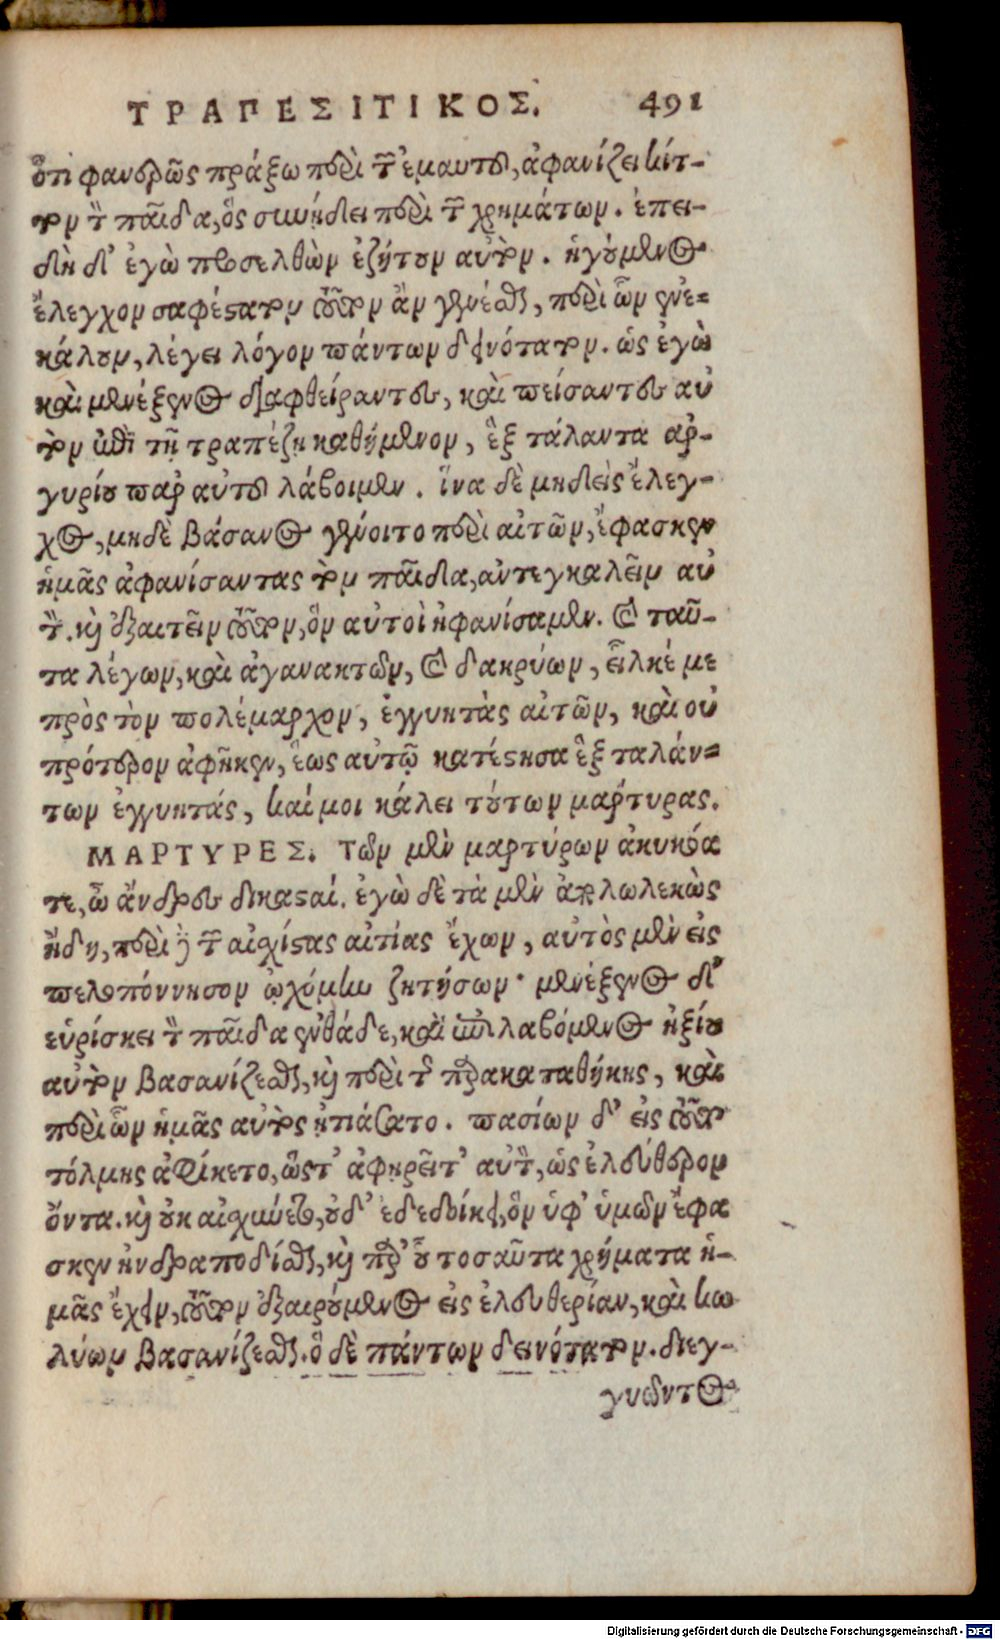 ΤΡΑΠΕΣΙΤΙΚΟΣ. 491
ὅτι φανερῶς πράξω περὶ τῶν ἐμαυτοῦ, ἀφανίζει κίτ-
τον τὸν παῖδα, ὃς συνῄδει περὶ τῶν χρημάτων. ἐπει-
δὴ δ' ἐγὼ προσελθὼν ἐζήτουν αὐτὸν. ἡγούμενος
ἔλεγχον σαφέστατον τοῦτον ἂν γενέσθαι, περὶ ὧν ἐνε-
κάλουν, λέγει λόγον πάντων δεινότατον. ὡς ἐγὼ
καὶ μενέξενος διαφθείραντες, καὶ πείσαντες αὐ
τὸν ἐπὶ τῇ τραπέζῃ καθήμενον, ἓξ τάλαντα ἀρ-
γυρίου παρ' αὐτοῦ λάβοιμεν. ἵνα δὲ μηδεὶς ἔλεγ-
χος, μηδὲ βάσανος γένοιτο περὶ αὐτῶν, ἔφασκεν
ἡμᾶς ἀφανίσαντας τὸν παῖδα, ἀντεγκαλεῖν αὐ
τῷ. καὶ ἐξαιτεῖν τοῦτον, ὃν αὐτοὶ ἠφανίσαμεν. καὶ ταῦ-
τα λέγων, καὶ ἀγανακτῶν, καὶ δακρύων, εἷλκέ με
πρὸς τὸν πολέμαρχον, ἐγγυητὰς αἰτῶν, καὶ οὐ
πρότερον ἀφῆκεν, ἕως αὐτῷ κατέστησα ἓξ ταλάν-
των ἐγγυητάς, καί μοι κάλει τούτων μάρτυρας.
ΜΑΡΤΥΡΕΣ. Τῶν μὲν μαρτύρων ἀκηκόα
τε, ὦ ἄνδρες δικασταί. ἐγὼ δὲ τὰ μὲν ἀπολωλεκὼς
ἤδη, περὶ δὲ τῶν αἰσχίστας αἰτίας ἔχων, αὐτὸς μὲν εἰς
πελοπόννησον ᾠχόμην ζητήσων· μενέξενος δ'
εὑρίσκει τὸν παῖδα ἐνθάδε, καὶ ἐπιλαβόμενος ἠξίου
αὐτὸν βασανίζεσθαι, καὶ περὶ τῆς παρακαταθήκης, καὶ
περὶ ὧν ἡμᾶς αὐτὸς ᾐτιάσατο. πασίων δ' εἰς τοῦτο
τόλμης ἀφίκετο, ὥστ' ἀφῃρεῖτ' αὐτὸν, ὡς ἐλεύθερον
ὄντα. καὶ οὐκ αἰσχύνετο, οὐδ' ἐδεδοίκει, ὃν ὑφ' ὑμῶν ἔφα
σκεν ἠνδραποδίσθαι, καὶ παρ' οὗ τοσαῦτα χρήματα ἡ-
μᾶς ἔχειν, τοῦτον ἐξαιρούμενος εἰς ἐλευθερίαν, καὶ κω
λύων βασανίζεσθαι. ὃ δὲ πάντων δεινότατον. διεγ-
γυῶντος
Digitalisierung gefördert durch die Deutsche Forschungsgemeinschaft - DFG